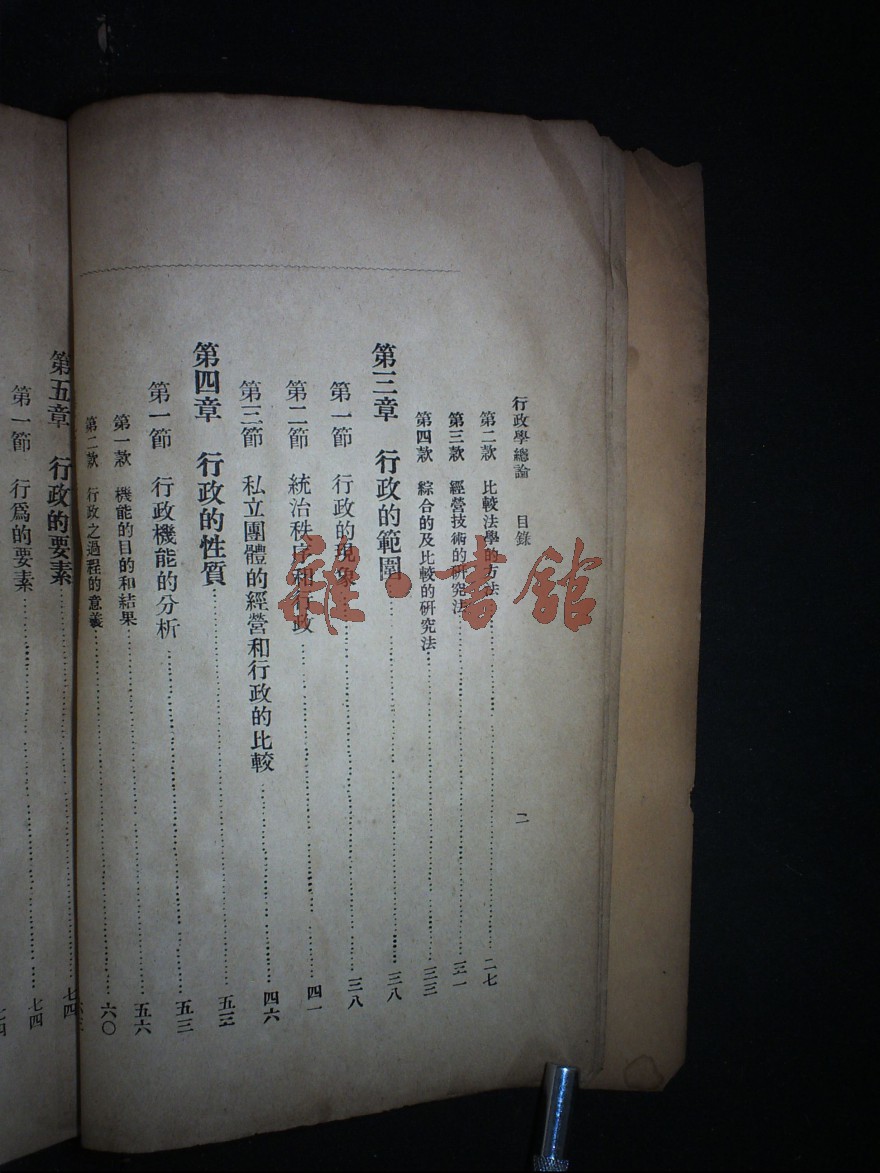 行政學總論 目錄 二
第二款 比較法學的方法 二七
第三款 經營技術的研究法 三一
第四款 綜合的及比較的研究法 三三
第三章 行政的範圍 三八
第一節 行政的現象 三八
第二節 統治秩序和行政 四一
第三節 私立團體的經營和行政的比較 四六
第四章 行政的性質 五三
第一節 行政機能的分析 五三
第一款 機能的目的和結果 五六
第二款 行政之過程的意義 六〇
第五章 行政的要素 七四
第一節 行爲的要素 七四
雜·書館